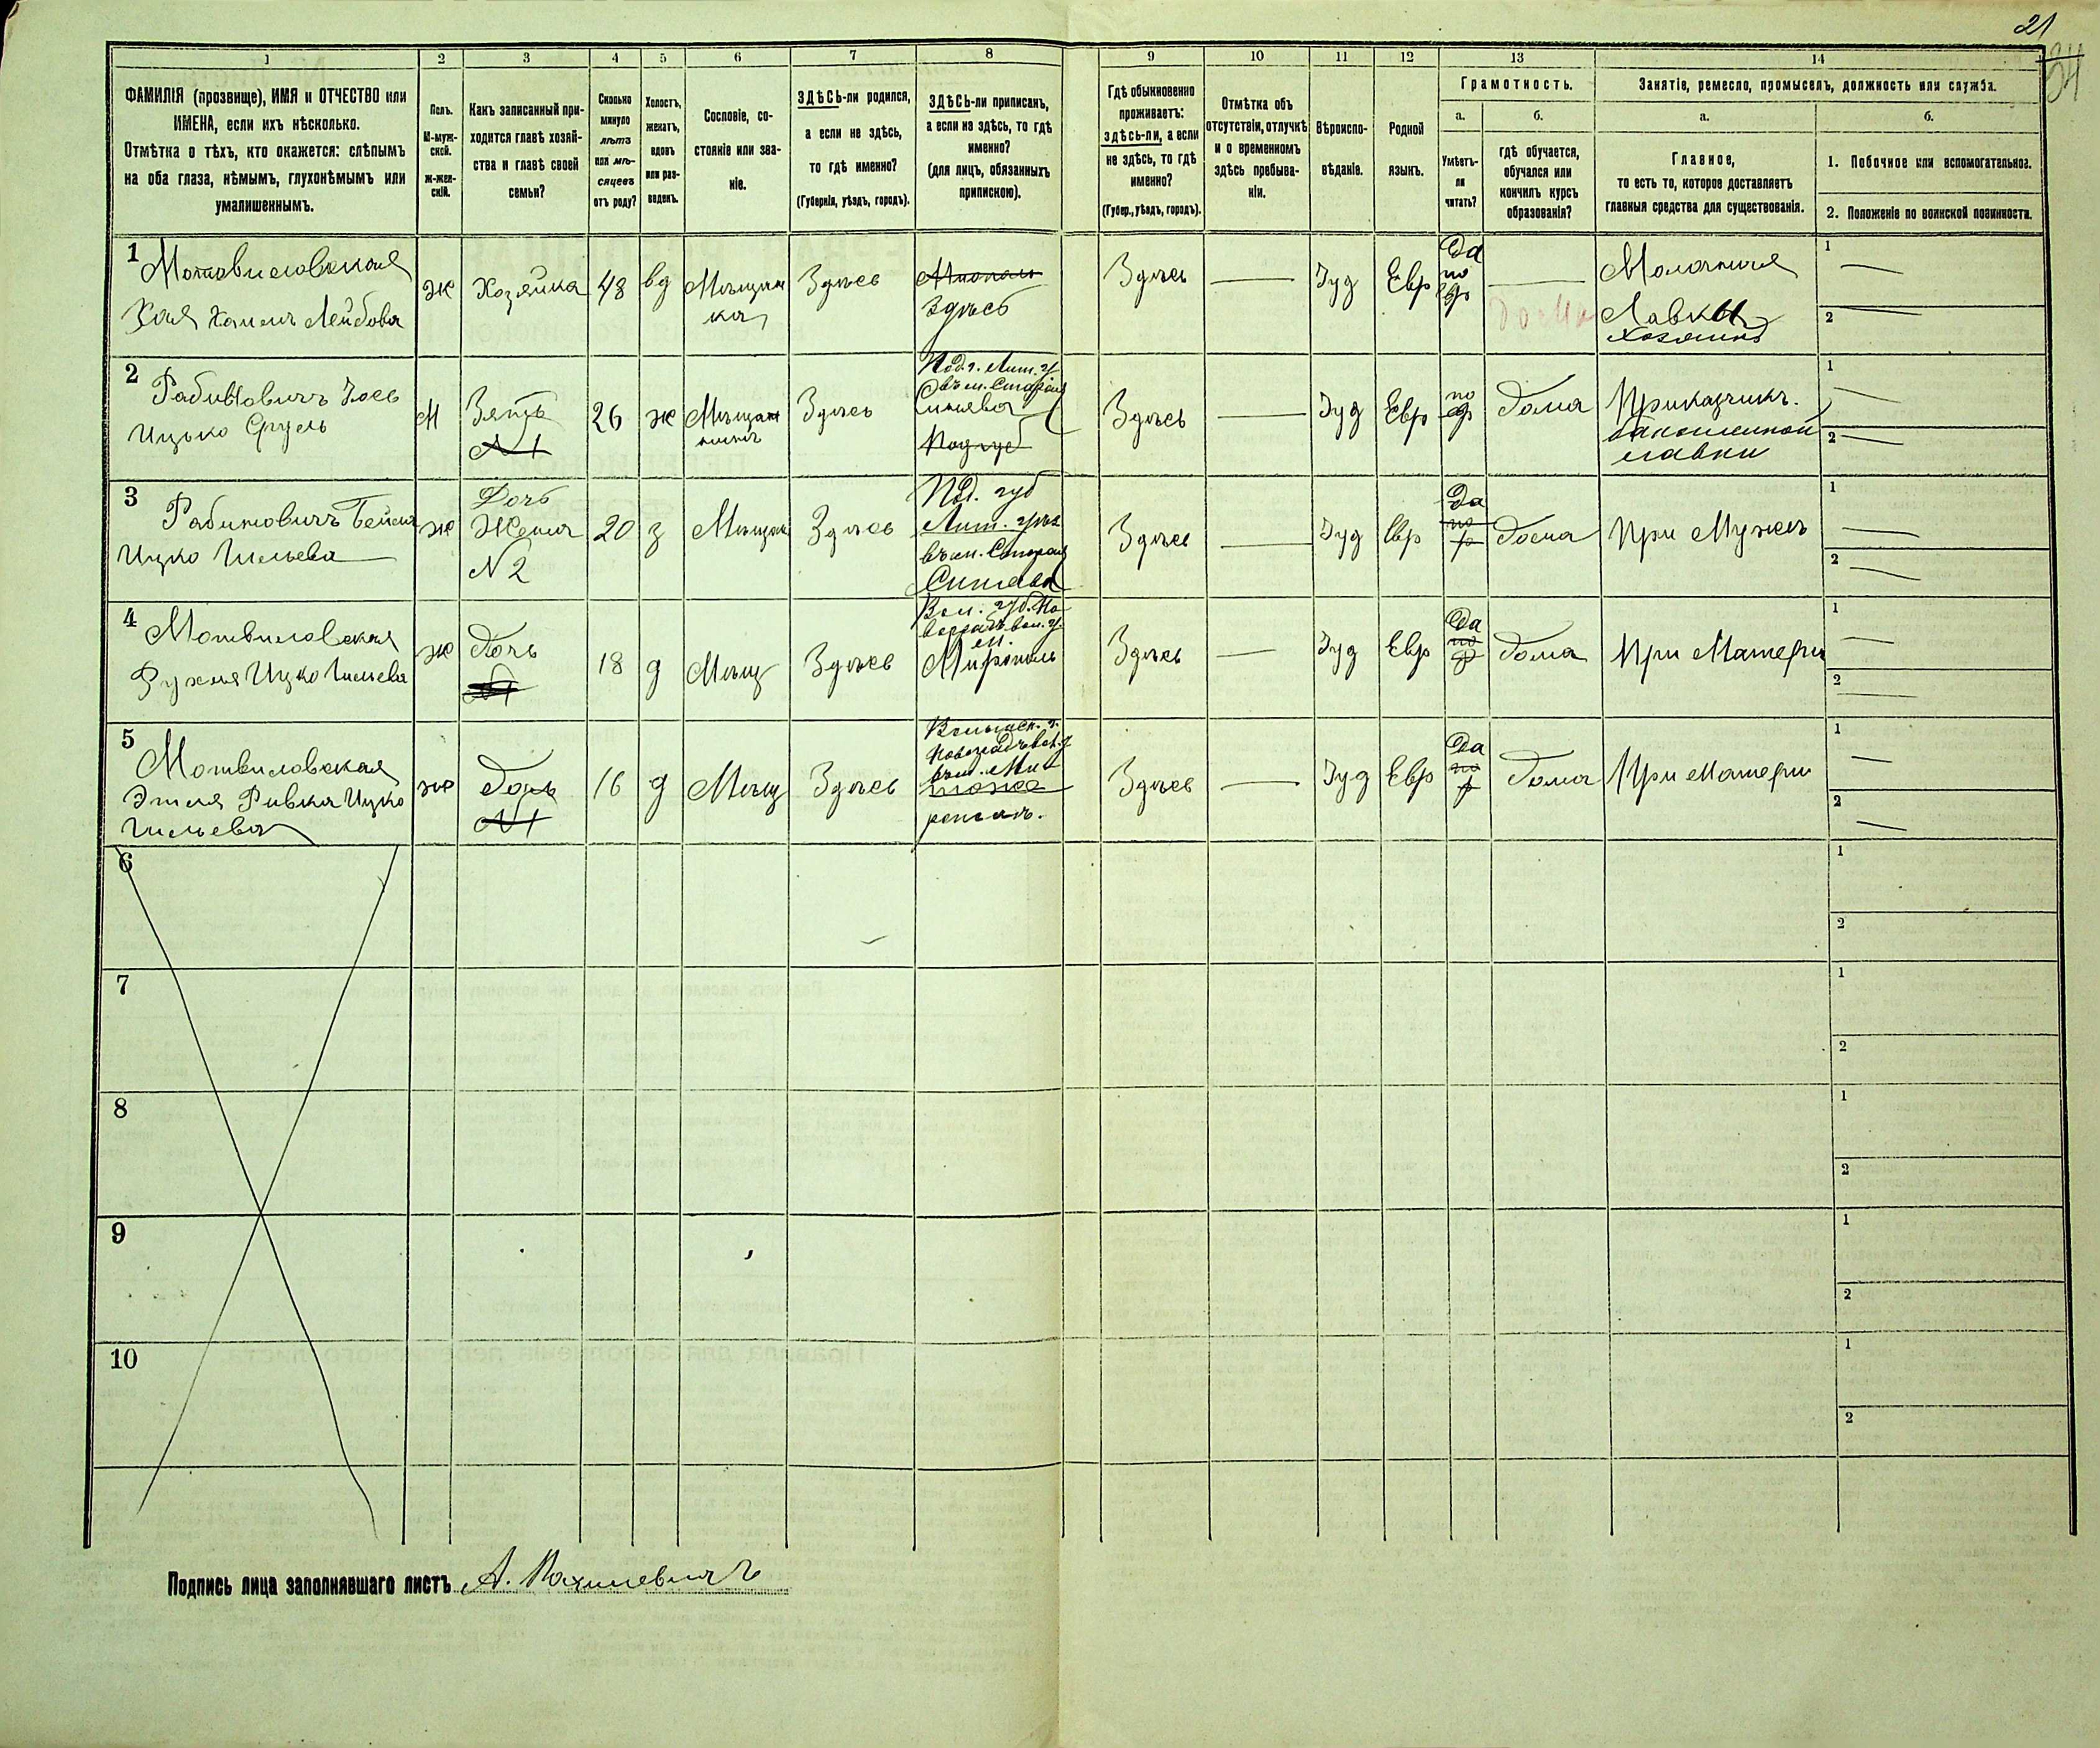 21
34
1
2
3
4
5
6
7
8
9
10
11
12
13
14
ФАМИЛІЯ (прозвище), ИМЯ и ОТЧЕСТВО или
ИМЕНА, если ихъ нѣсколько.
Отмѣтка о тѣхъ, кто окажется: слѣпымъ
на оба глаза, нѣмымъ, глухонѣмымъ или
умалишеннымъ.
Полъ.
М-муж-
ской.
ж-жен-
скій.
Какъ записанный при-
ходится главѣ хозяй-
ства и главѣ своей
семьи?
Сколько
минуло
лѣтъ
или мѣ-
сяцевъ
отъ роду?
Холостъ,
женатъ,
вдовъ
или раз-
веденъ.
Сословіе, со-
стояніе или зва-
ніе.
ЗДѢСЬ-ли родился,
а если не здѣсь,
то гдѣ именно?
(Губернія, уѣздъ, городъ).
ЗДѢСЬ-ли приписанъ,
а если не здѣсь, то гдѣ
именно?
(для лицъ, обязанныхъ
припискою).
Гдѣ обыкновенно
проживаетъ:
здѣсь-ли, а если
не здѣсь, то гдѣ
именно?
(Губер., уѣздъ, городъ).
Отмѣтка объ
отсутствіи, отлучкѣ
и о временномъ
здѣсь пребыва-
ніи.
Вѣроиспо-
вѣданіе.
Родной
языкъ.
Грамотность.
а.
б.
Умѣетъ-
ли
читать?
гдѣ обучается,
обучался или
кончилъ курсъ
образованія?
Занятіе, ремесло, промыселъ, должность или служба.
а.
б.
Главное,
то есть то, которое доставляетъ
главныя средства для существованія.
1. Побочное или вспомогательное.
2. Положеніе по воинской повинности.
1
Мотвиловская
Хая Лейбова
ж
Хозяйка
48
вд
Мѣщан
ка
Здѣсь
Здѣсь
Здѣсь
Іуд
Евр
Да
по
дома
Молочная
Лавка
1
2
2
Рабиновичъ
Ицько Сруль
М
Зять
N 1
26
ж
Мѣщан
Здѣсь
Под. г. Лит. у
Синява
Здѣсь
Іуд
Евр
по
Дома
Приказчикъ.
бакалейной
лавки
1
2
3
Рабиновичъ Бейля
Ицко
ж
Дочь
Жена
N 2
20
з
Мѣщан
Здѣсь
Под. губ
Лит. уѣз
Синява
Здѣсь
Іуд
Евр
Да
по
Дома
При Мужѣ
1
2
4
Мотвиловская
Рухля Ицко
ж
Дочь
18
д
Мѣщ
Здѣсь
Вол. губ. Но
м.
Мирополь
Здѣсь
Іуд
Евр
Да
по
Дома
При Матери
1
2
5
Мотвиловская
Этля Ривка Ицко
ж
Дочь
N 1
16
д
Мѣщ
Здѣсь
Здѣсь
Іуд
Евр
Да
по
Дома
При матери
1
2
6
1
2
7
1
2
8
1
2
9
1
2
10
1
2
Подпись лица заполнявшаго листъ А.